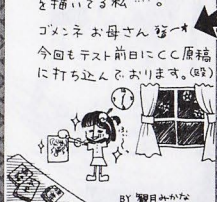 を描いてる私…。
ゴメンネお母さん
今回もテスト前日にCC原稿
に打ち込んでおります。(殴)
BY 観月みかな